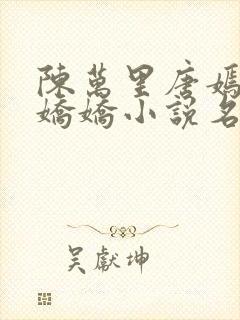 陳萬里唐嫣
嬌嬌小說名
吴獻坤